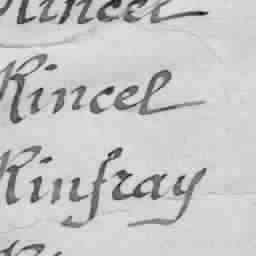 Rincel
Rincel
Rinfray